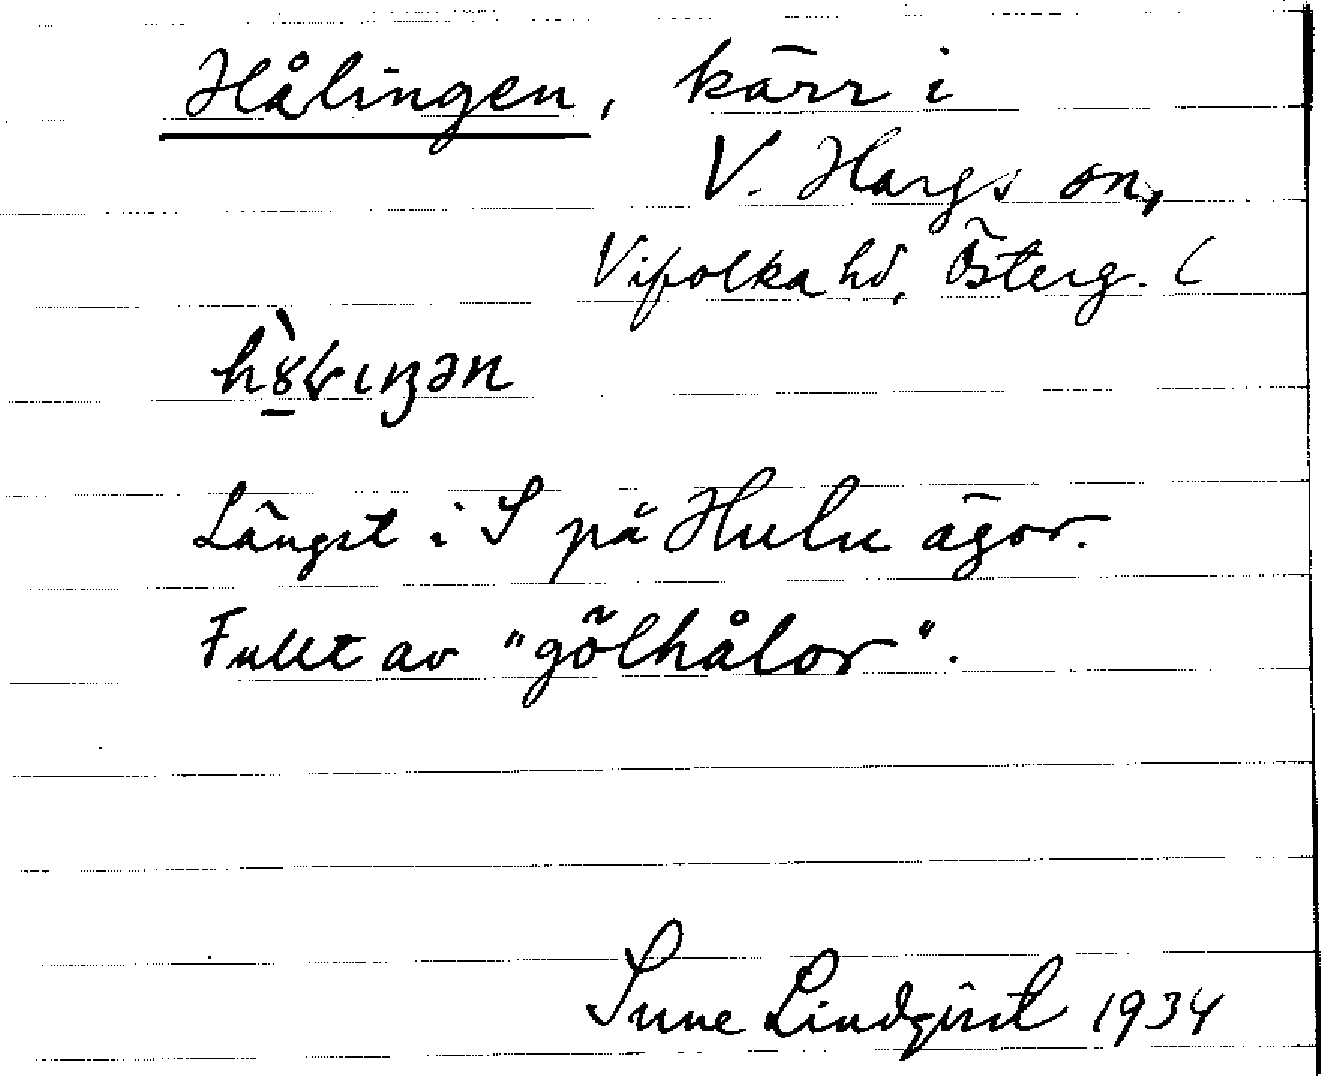 Hålingen, kärr i
V. Hargs sn,
Vifolka hd, Österg. (
Längst i S på Hulu ägor.
Fullt av "gölhålor".
Sune Lindqvist 1934